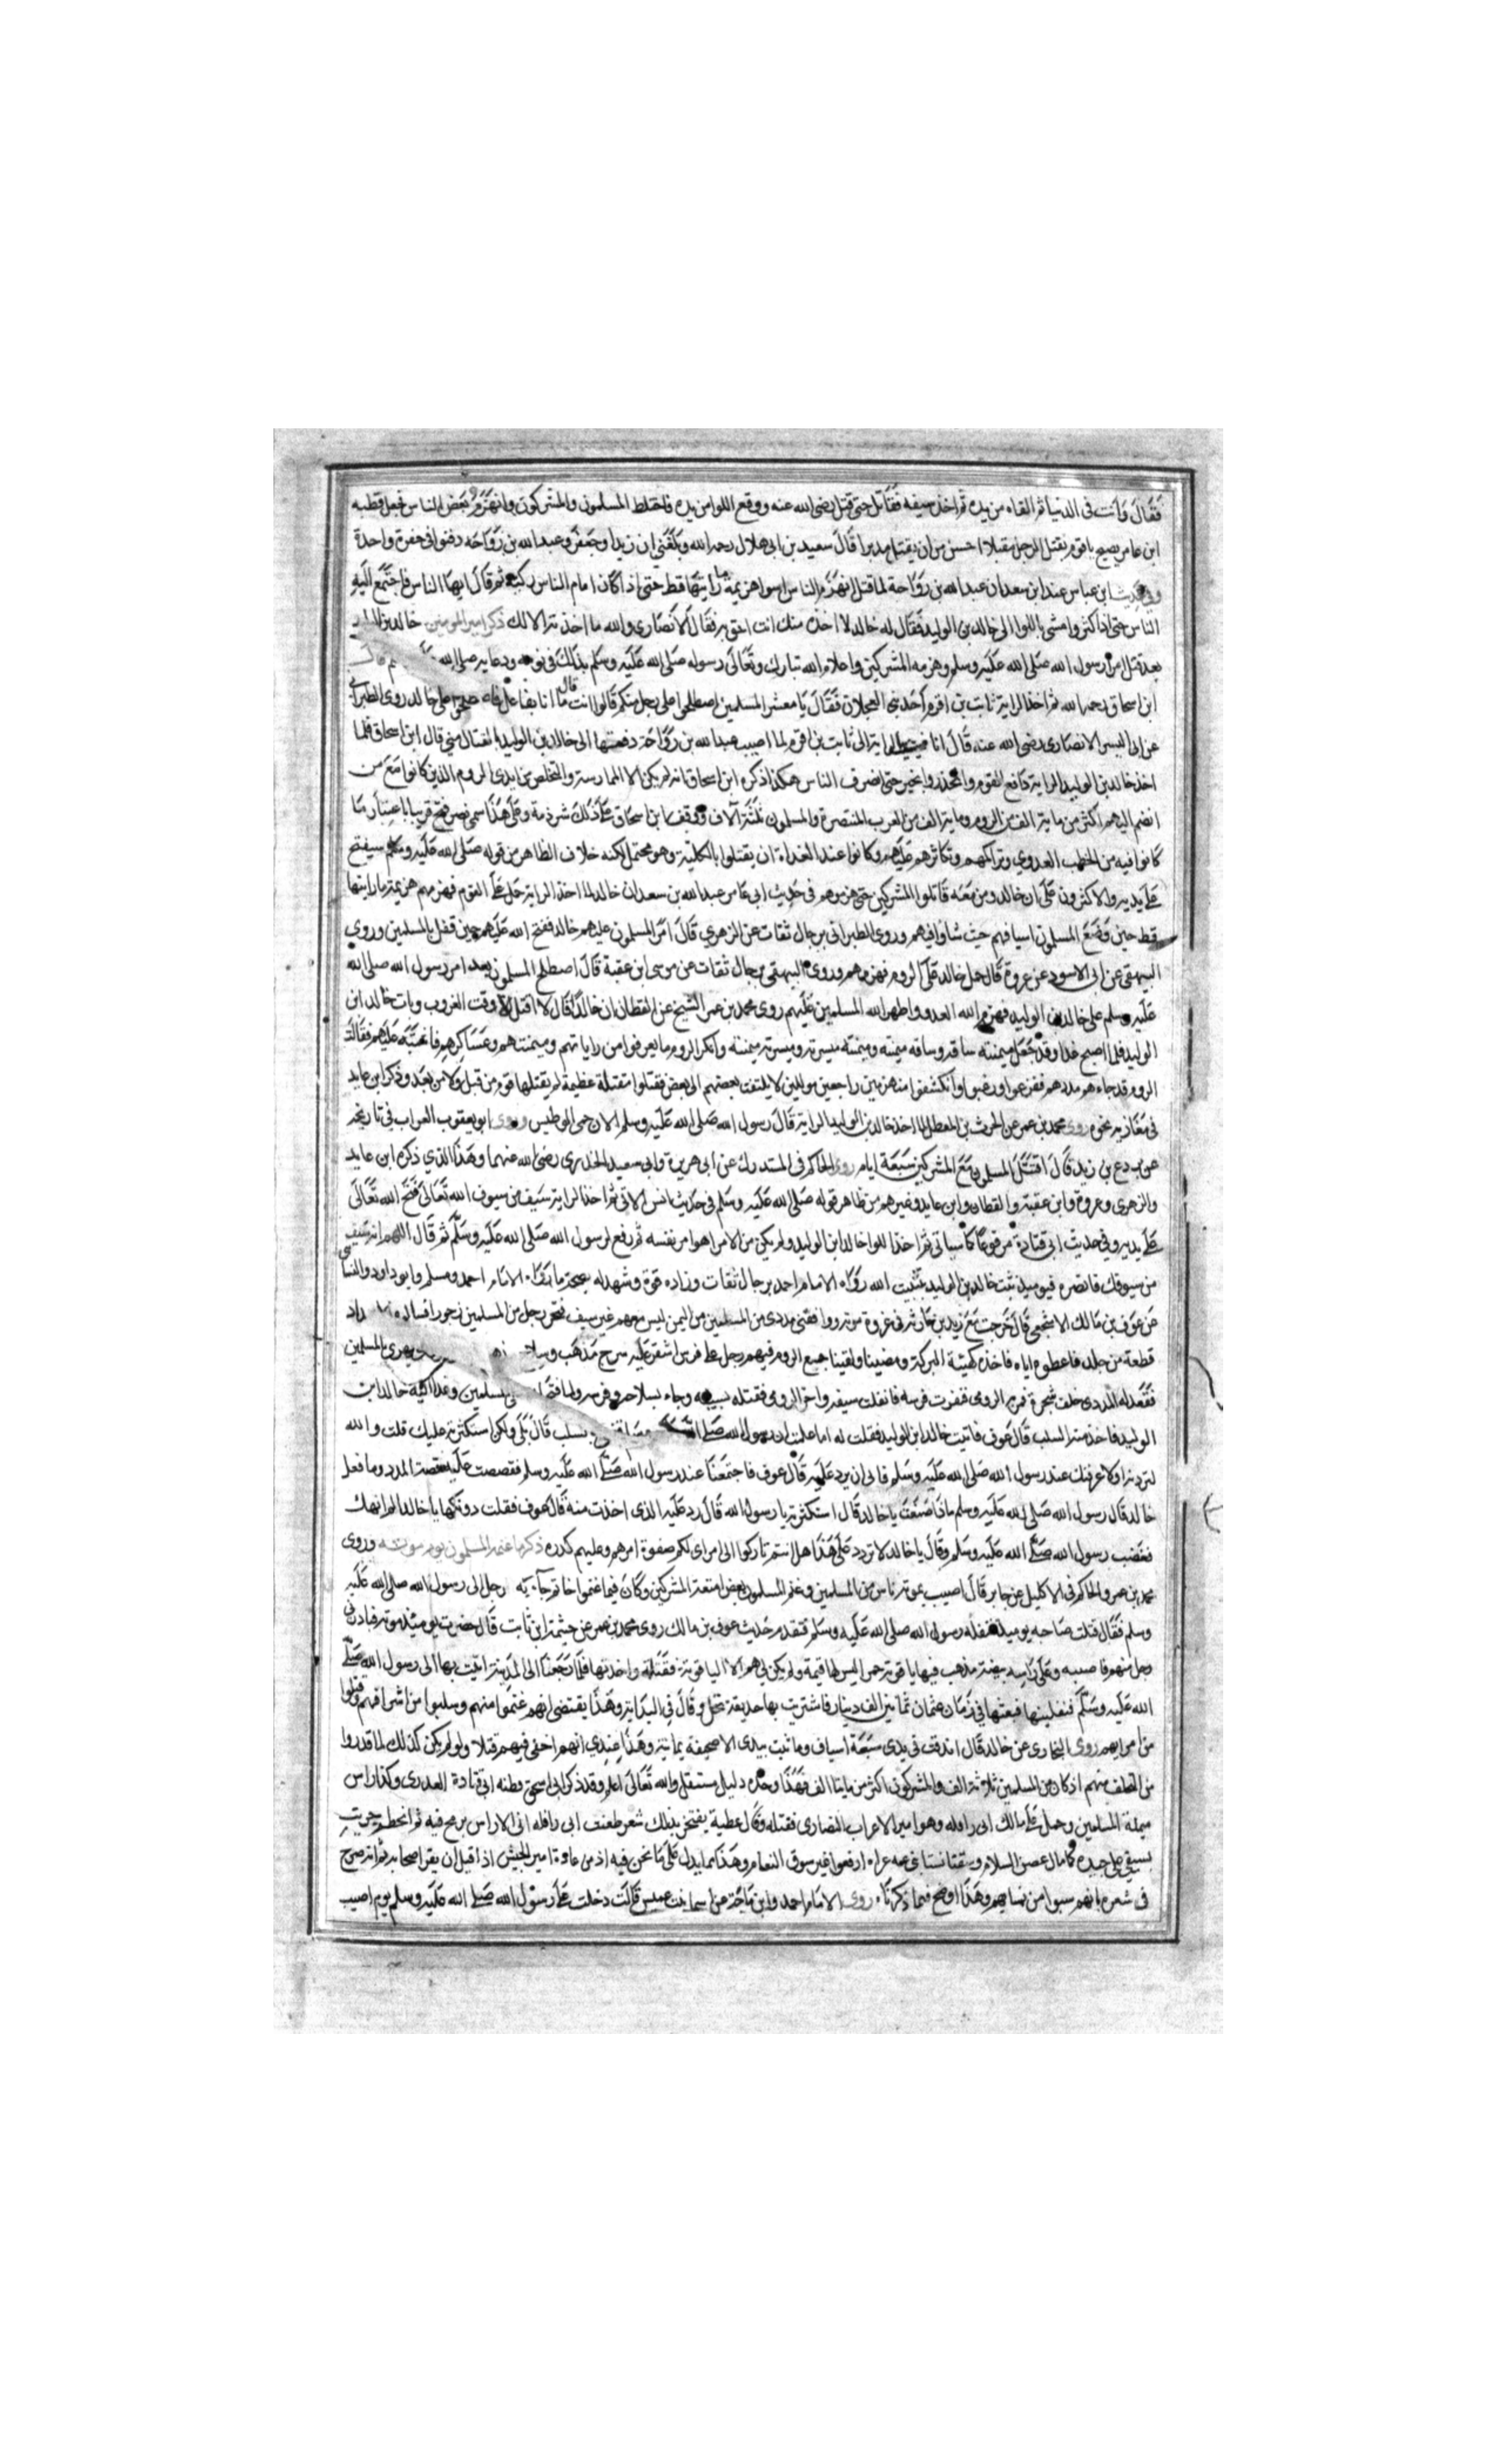 فقال وانت في الدنيا ثم القاه من يده ثم اخذ سيفه فقاتل حتى قتل رضي الله عنه ووقع اللوا من يده فاختلط المسلمون والمشركون وانهزم بعض الناس فجعل قطبه
ابن عامر يصيح يا قوم يقتل الرجل مقبلا احسن من ان يقتل مدبرا قال سعيد بن ابي هلال رحمه الله وبلغني ان زيدا وجعفر وعبد الله بن رواحه دفنوا في حفرة واحدة
وفي حديث ابن عباس عند ابن سعد ان عبد الله بن رواحة لما قتل انهزم الناس اسوا هزيمة ما رايتها قط حتى اذا كان امام الناس ركبه ثم قال ايها الناس فاجتمع اليه
الناس حتى اذا كثروا مشى باللوا الى خالد بن الوليد فقال له خالد لا اخذه منك انت احق به فقال الانصاري والله ما اخذته الا لك ذكر امير المومنين خالد بن الوليد
بعد قتل امر رسول الله صلى الله عليه وسلم وهزمه المشركين واعلام الله تبارك وتعالى رسوله صلى الله عليه وسلم بذلك في نومه ودعايه صلى الله قال
ابن اسحاق رحمه الله ثم اخذ الراية ثابت بن اقرم احد بني العجلان فقال يا معشر المسلمين اصطلحوا على رجل منكم قالوا انت قال ما انا بفاعل فاصطلحوا على خالد روى الطبراني
عن ابي اليسر الانصاري رضي الله عنه قال انا الراية الى ثابت بن اقرم لما اصيب عبد الله بن رواحة دفعتها الى خالد بن الوليد بالقتال مني قال ابن اسحاق فلما
اخذ خالد بن الوليد الراية دافع القوم وانحذروا انحيز حتى انصرف الناس هكذا ذكره ابن اسحاق انه لم يكن الا الممارسة والتخلص من ايدي الروم الذين كانوا مع من
انضم اليهم اكثر من ماية الف من الروم وماية الف من العرب المتنصرة والمسلمون ثلثة آلاف ووقف ابن اسحاق على ذلك شرذمة وعلى هذا سمي نصر فتح قريبا باعتبار ما
كانوا فيه من الخطب العدوي وتراكمهم وتكاثرهم عليهم وكانوا عند الغداة ان يقتلوا بالكلية وهو محتمل لكنه خلاف الظاهر من قوله صلى الله عليه وسلم سيفتح
على يديه والاكثرون على ان خالد ومن معه قاتلوا المشركين حتى هزموهم في حديث ابي عامر عبد الله بن سعد ان خالد لما اخذ الراية حمل على القوم فهزمهم هزيمة ما رايتها
قط حتى وضع المسلمون اسيافهم حيث شاوا فيهم وروى الطبراني برجال ثقات عن الزهري قال امر المسلمون عليهم خالد ففتح الله عليهم حين قفل بالمسلمين وروى
البيهقي عن ابي الاسود عن عروة قال حمل خالد على الروم فهزمهم وروى البيهقي برجال ثقات عن موسى ابن عقبة قال اصطلح المسلمون بعد امر رسول الله صلى الله
عليه وسلم على خالد بن الوليد فهزم الله العدو واظهر الله المسلمين عليهم روى محمد بن عمر الشيخ عن القطان ان خالدا قال لا اقتل الا وقت الغروب وبات خالد ابن
الوليد فلما اصبح غدا وقد جعل ميمنته ساقه وساقه ميمنته وميمنته ميسرته وميسرته ميمنته وانكر الروم ما يعرفوا من راياتهم وميمنتهم وعساكرهم فقالت
الروم قد جاءهم مدد هم ففزعوا ورعبوا وانكشفوا منهزمين راجعين موليين لا يلتفت بعضهم الى بعض فقتلوا مقتلة عظيمة لم يقتلها قوم من قبل ولا من بعد وذكر ابن عايد
في مغازيه نحوه روى محمد بن عمر عن الحرث بن المعطل لما اخذ خالد بن الوليد الراية قال رسول الله صلى الله عليه وسلم الان حمى الوطيس وروى ابو يعقوب العراب في تاريخه
عن بردع بن زيد قال اقتتل المسلمون مع المشركين سبعة ايام روى الحاكم في المستدرك عن ابي هريرة وابي سعيد الخدري رضي الله عنهما وهذا الذي ذكره ابن عايد
والزهري وعروة وابن عقبة والقطان وابن عايد وغيرهم من ظاهر قوله صلى الله عليه وسلم في حديث انس الاتي ثم اخذ الراية سيف من سيوف الله تعالى ففتح الله تعالى
على يديه وفي حديث ابي قتادة مرفوعا كما سياتي ثم اخذ اللوا خالد ابن الوليد ولم يكن من الامرا هو امر نفسه ثم رفع رسول الله صلى الله عليه وسلم ثم قال اللهم انه سيف
من سيوفك فانصره فيوميذ ثبت خالد بن الوليد تثبيت الله رواه الامام احمد برجال ثقات وزاده قوة وشهد له بصحة ما رواه الامام احمد ومسلم وابو داود والنسائي
عن عوف بن مالك الاشجعي قال خرجت مع زيد بن حارثه في غزوة موته ورافقني مددي من المسلمين من اليمن ليس معه غير سيف فنحر رجل من المسلمين جزورا فساله
قطعة من جلده فاعطوه اياه فاخذه كهيئة البركة ومضينا ولقينا جميع الروم فيهم رجل على فرس اشقر عليه سرج مذهب يغري بالمسلمين
فقعد له المددي خلف شجرة فمر به الرومي فعقرت فرسه فانفلت سيفه واخر الرومي فقتله بسيفه وجاء بسلاحه وفرسه ولما فتح المسلمين وغدا اليه خالد ابن
الوليد فاخذ منه السلب قال عوف فاتيت خالد ابن الوليد فقلت له اما علمت ان رسول الله صلى الله بسلب قال بلى ولكن استكثرته عليك قلت والله
لتردنه او لاعرفنك عند رسول الله صلى الله عليه وسلم فابى ان يرد عليه قال عوف فاجتمعنا عند رسول الله صلى الله عليه وسلم فقصصت عليه قصة المدد وما فعل
خالد قال رسول الله صلى الله عليه وسلم ماذا صنعت يا خالد قال استكثرته يا رسول الله قال رد عليه الذي اخذت منه قال عوف فقلت دونكها يا خالد الم انهك
فغضب رسول الله صلى الله عليه وسلم وقال يا خالد لا تردد على هذا هل انتم تاركوا الى امراى لكم صفوة امرهم وعليهم كدره ذكر ما غنم المسلمون يوم موته وروى
محمد بن عمر والحاكم في الاكليل عن جابر قال اصيب بموته ناس من المسلمين وغنم المسلمون بعض امتعة المشركين وكان فيما غنموا خاتم جاء به رجل الى رسول الله صلى الله عليه
وسلم فقال قتلت صاحبه يوميذ فنفله رسول الله صلى الله عليه وسلم فتقدم حديث عوف بن مالك روى محمد بن عمر عن خيثمة ابن ثابت قال حضرت يوميذ موته فبارزني
رجل منهم فاصيبه وعلى راسه بيضة مذهب فيها ياقوته حمر اليس لها قيمة ولم يكن لي هم الا الياقوتة فقتلته واخذتها فلما رجعنا الى المدينة اتيت بها الى رسول الله صلى
الله عليه وسلم فنفلنيها فبعتها في زمان عثمان ثمانين الف دينار فاشتريت بها حديقة نخل وقال في البداية وهذا يقتضي انهم غنموا منهم وسلبوا من اشرافهم وقتلوا
من امرايهم روى البخاري عن خالد قال اندقت في يدي سبعة اسياف وما ثبت بيدي الا صحيفة يمانية وهذا عندي انهم اخفى فيهم قتلا ولو لم يكن كذلك لما قدروا
من الطف منهم اذ كان من المسلمين ثلاثة الف والمشركون اكثر من مايتا الف فهذا وحده دليل مستقل والله تعالى اعلم وقد ذكر ابن اسحق وطنه ابي قتادة العدري وكذا راس
ميمنة المسلمين وحمل على مالك ابن رافله وهو امير الاعراب النصارى فقتله وقال عطية يفتخر بذلك شعر طعنت ابن رافله ابن الاراس برمح فيه ثم انحطم ضربت
بسيفي على جيده كما مال غصن السلم وسقنا نسا بني عمه غراء ارضوا غير سوق النعام وهذا مما يدل على ما نحن فيه اذ من عادة امير الجيش اذا قيل ان يفر اصحابه ثم انه صرح
في شعره بانهم سبوا من نسايهم وهذا اوضح فيما ذكرناه روى الامام احمد وابن ماجة عن اسما بنت عميس قالت دخلت على رسول الله صلى الله عليه وسلم يوم اصيب